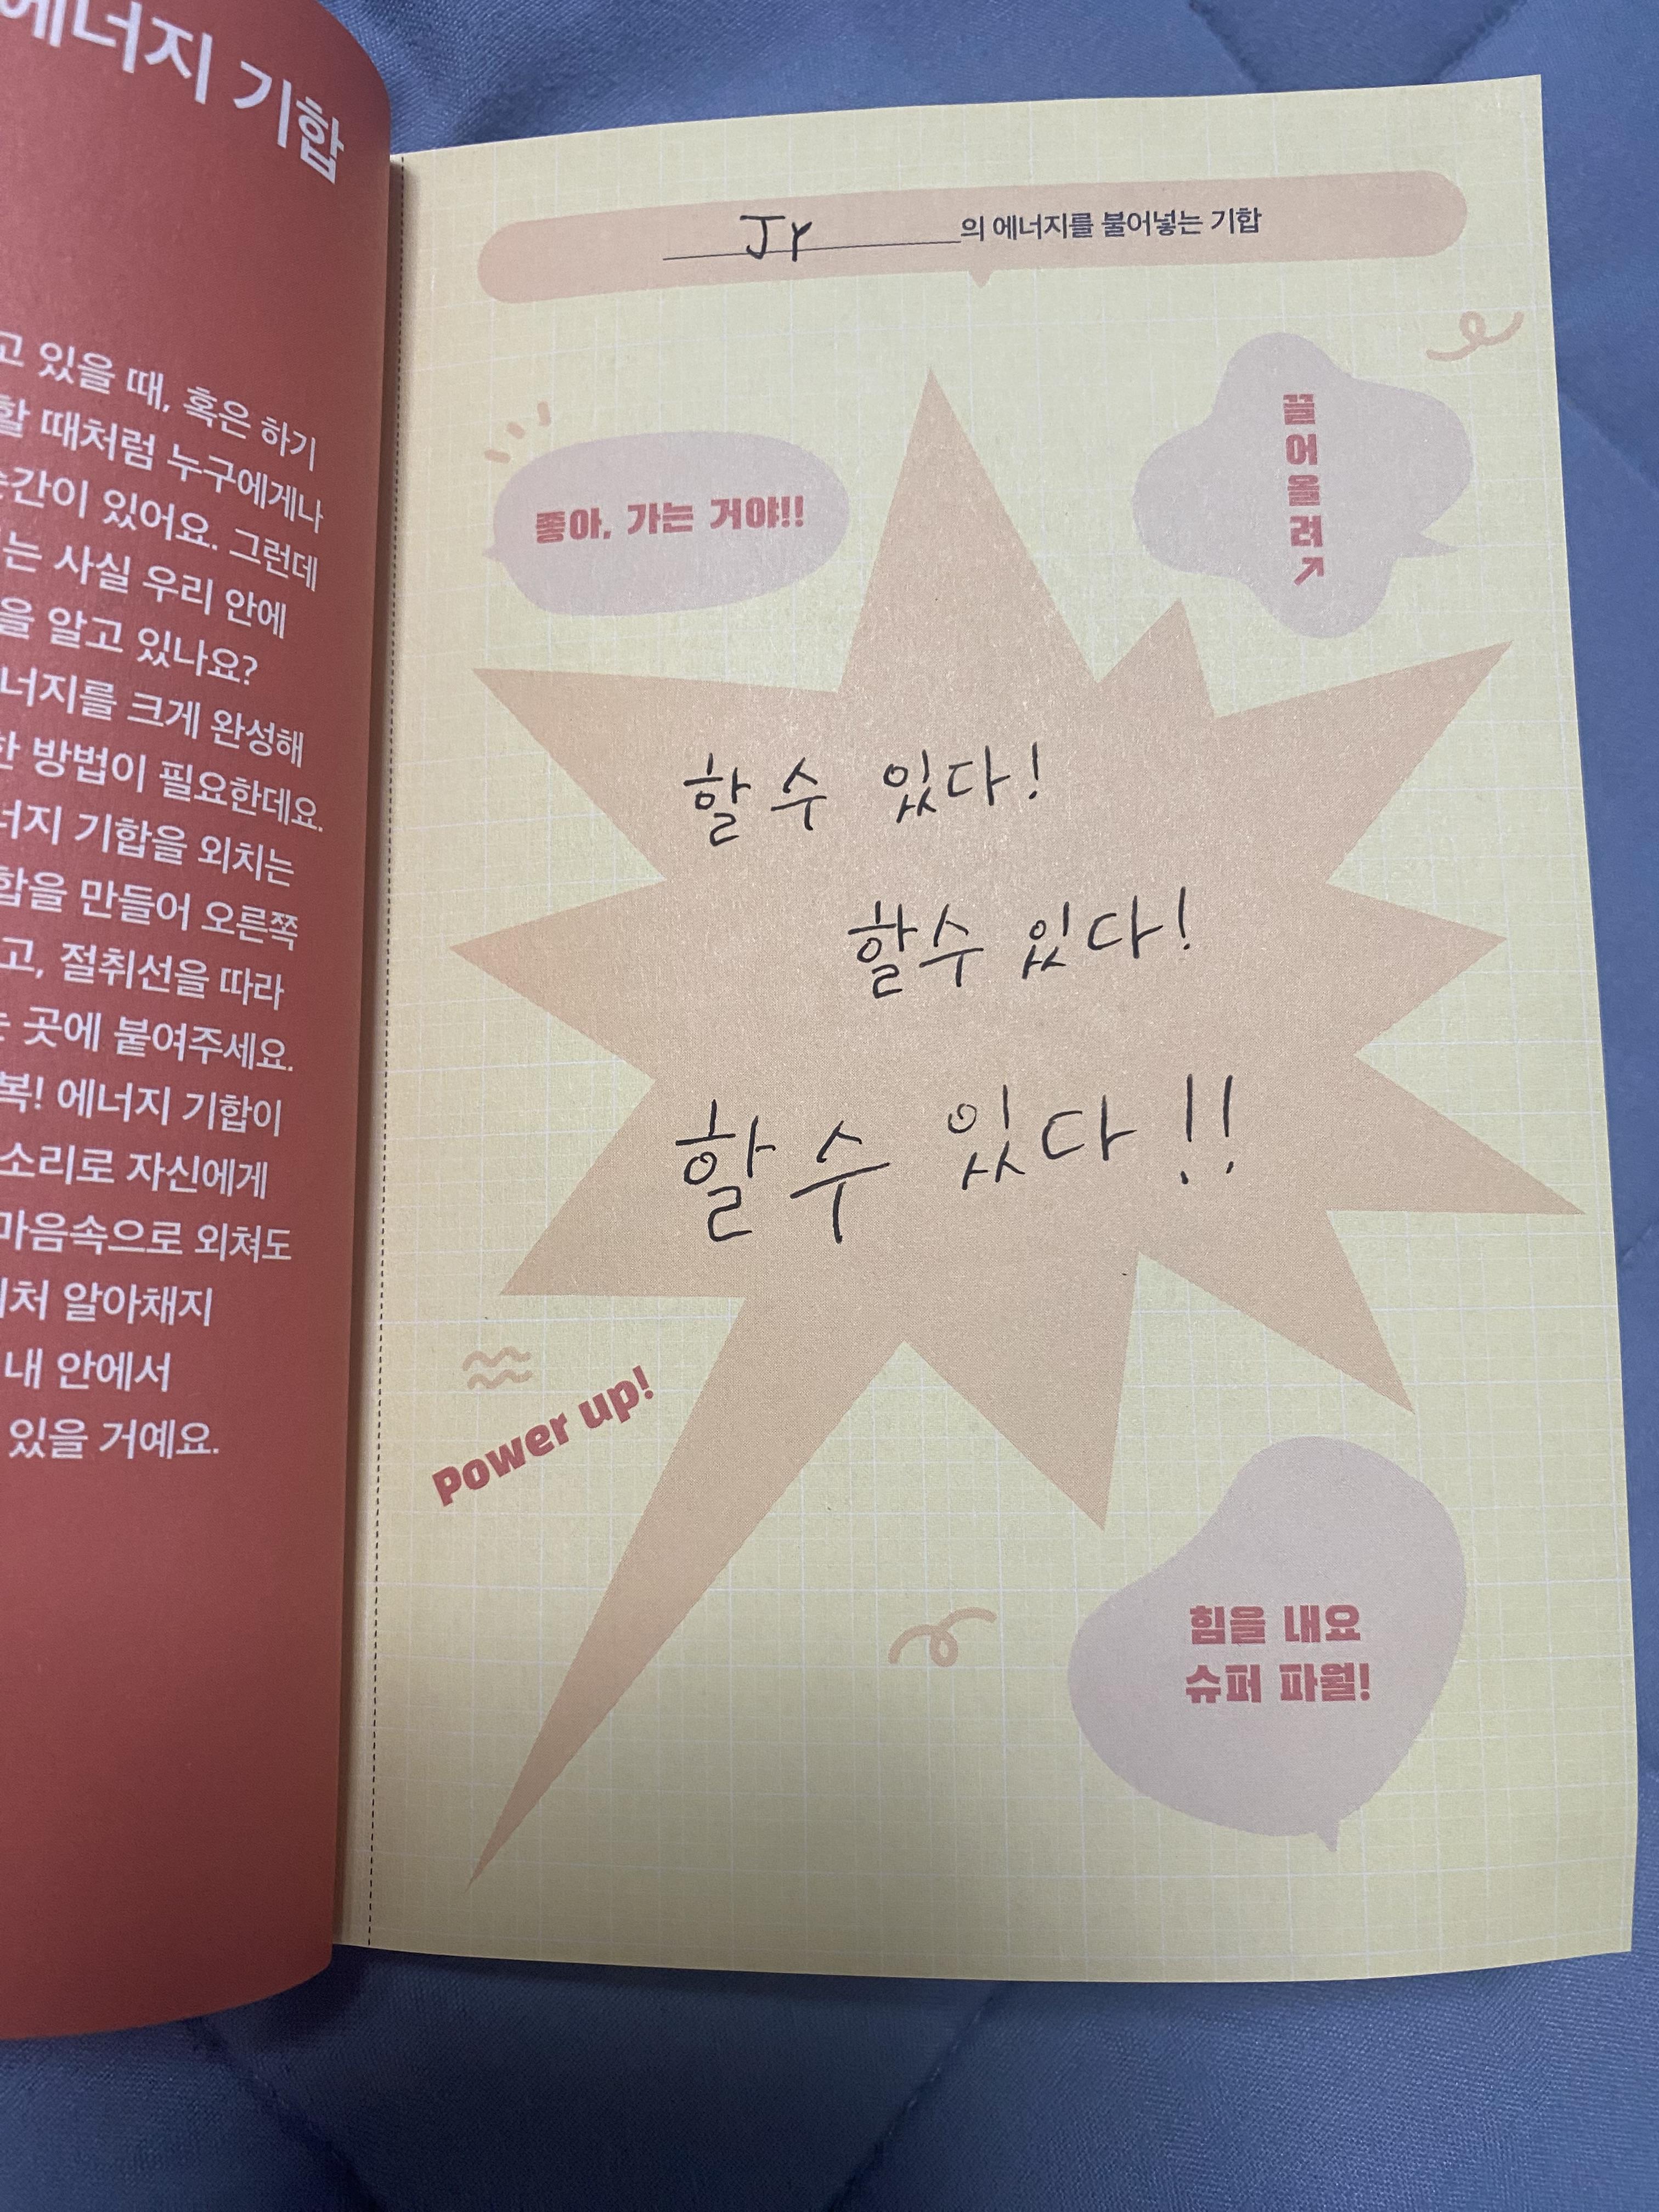 에너지 기합
고 있을 때, 혹은 하기
할 때처럼 누구에게나
순간이 있어요. 그런데
는 사실 우리 안에
을 알고 있나요?
너지를 크게 완성해
한 방법이 필요한데요.
너지 기합을 외치는
합을 만들어 오른쪽
고, 절취선을 따라
는 곳에 붙여주세요.
복! 에너지 기합이
소리로 자신에게
마음속으로 외쳐도
미처 알아채지
내 안에서
있을 거예요.
JY의 에너지를 불어넣는 기합
좋아, 가는 거야!!
끌어올려↗
할 수 있다!
할수 있다!
할 수 있다!!
Power up!
힘을 내요
슈퍼 파월!